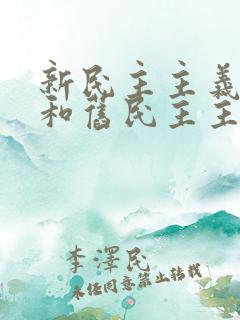 新民主主義
和舊民主主
李澤民
未经同意禁止转载